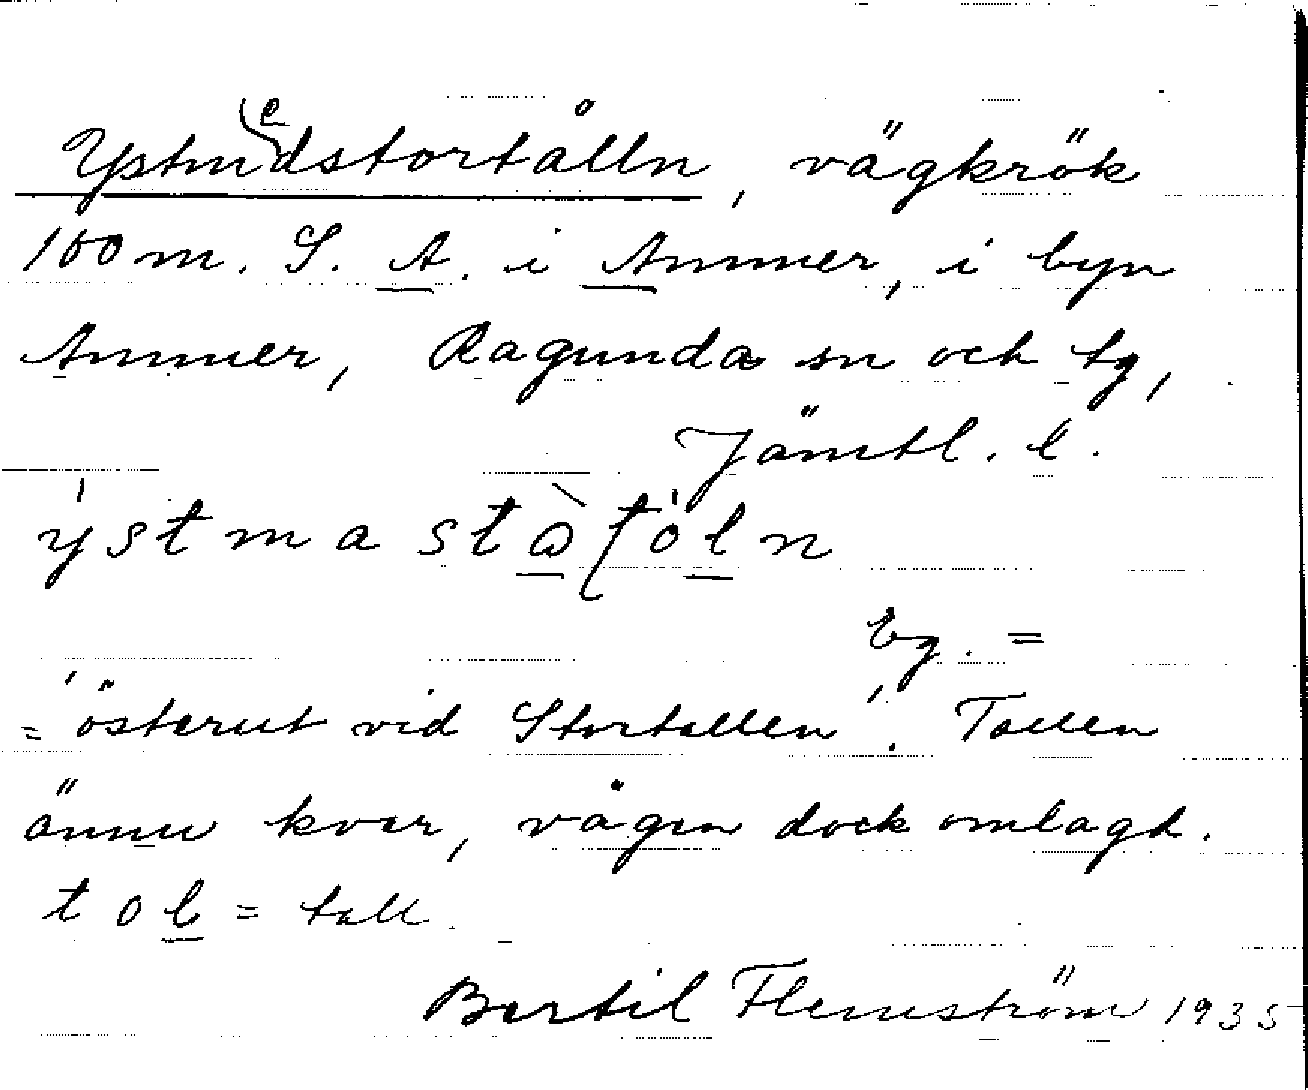 Ystmedstortålln, vägkrök
100 m. S. A. i Ammer, i byn
Ammer, Ragunda sn och tg,
Jämtl. l.
ystmastàʃtöln
bg. =
= 'österut vid Stortallen'. Tallen
ännu kvar, vägen dock omlagd.
tol = tall.
Bertil Flemström 1935